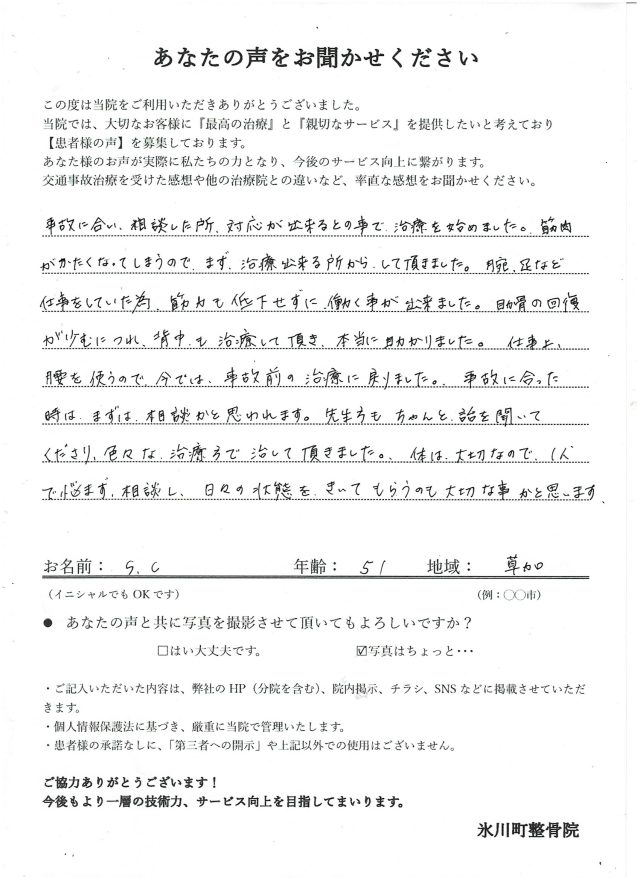 あなたの声をお聞かせください
この度は当院をご利用いただきありがとうございました。
当院では、大切なお客様に『最高の治療』と『親切なサービス』を提供したいと考えており
【患者様の声】を募集しております。
あなた様のお声が実際に私たちの力となり、今後のサービス向上に繋がります。
交通事故治療を受けた感想や他の治療院との違いなど、率直な感想をお聞かせください。
事故に合い、相談した所、対応が出来るとの事で、治療を始めました。筋肉
がかたくなってしまうので、まず、治療出来る所から、して頂きました。腕、足など
仕事をしていた為、筋力も低下せずに、働く事が出来ました。肋骨の回復
がすすむにつれ、背中も治療して頂き、本当に助かりました。仕事上、
腰を使うので、今では、事故前の治療に戻りました。事故に合った
時は、まずは、相談かと思われます。先生方も ちゃんと、話を聞いて
くださり、色々な、治療方で治して頂きました。体は、大切なので、1人
で悩まず、相談し、日々の状態を、きいてもらうのも大切な事かと思います。
お名前： S.C 年齢： 51 地域： 草加
（イニシャルでもOKです） （例：〇〇市）
● あなたの声と共に写真を撮影させて頂いてもよろしいですか？
□はい大丈夫です。 ☑写真はちょっと・・・
・ご記入いただいた内容は、弊社のHP（分院を含む）、院内掲示、チラシ、SNSなどに掲載させていただ
きます。
・個人情報保護法に基づき、厳重に当院で管理いたします。
・患者様の承諾なしに、「第三者への開示」や上記以外での使用はございません。
ご協力ありがとうございます！
今後もより一層の技術力、サービス向上を目指してまいります。
氷川町整骨院